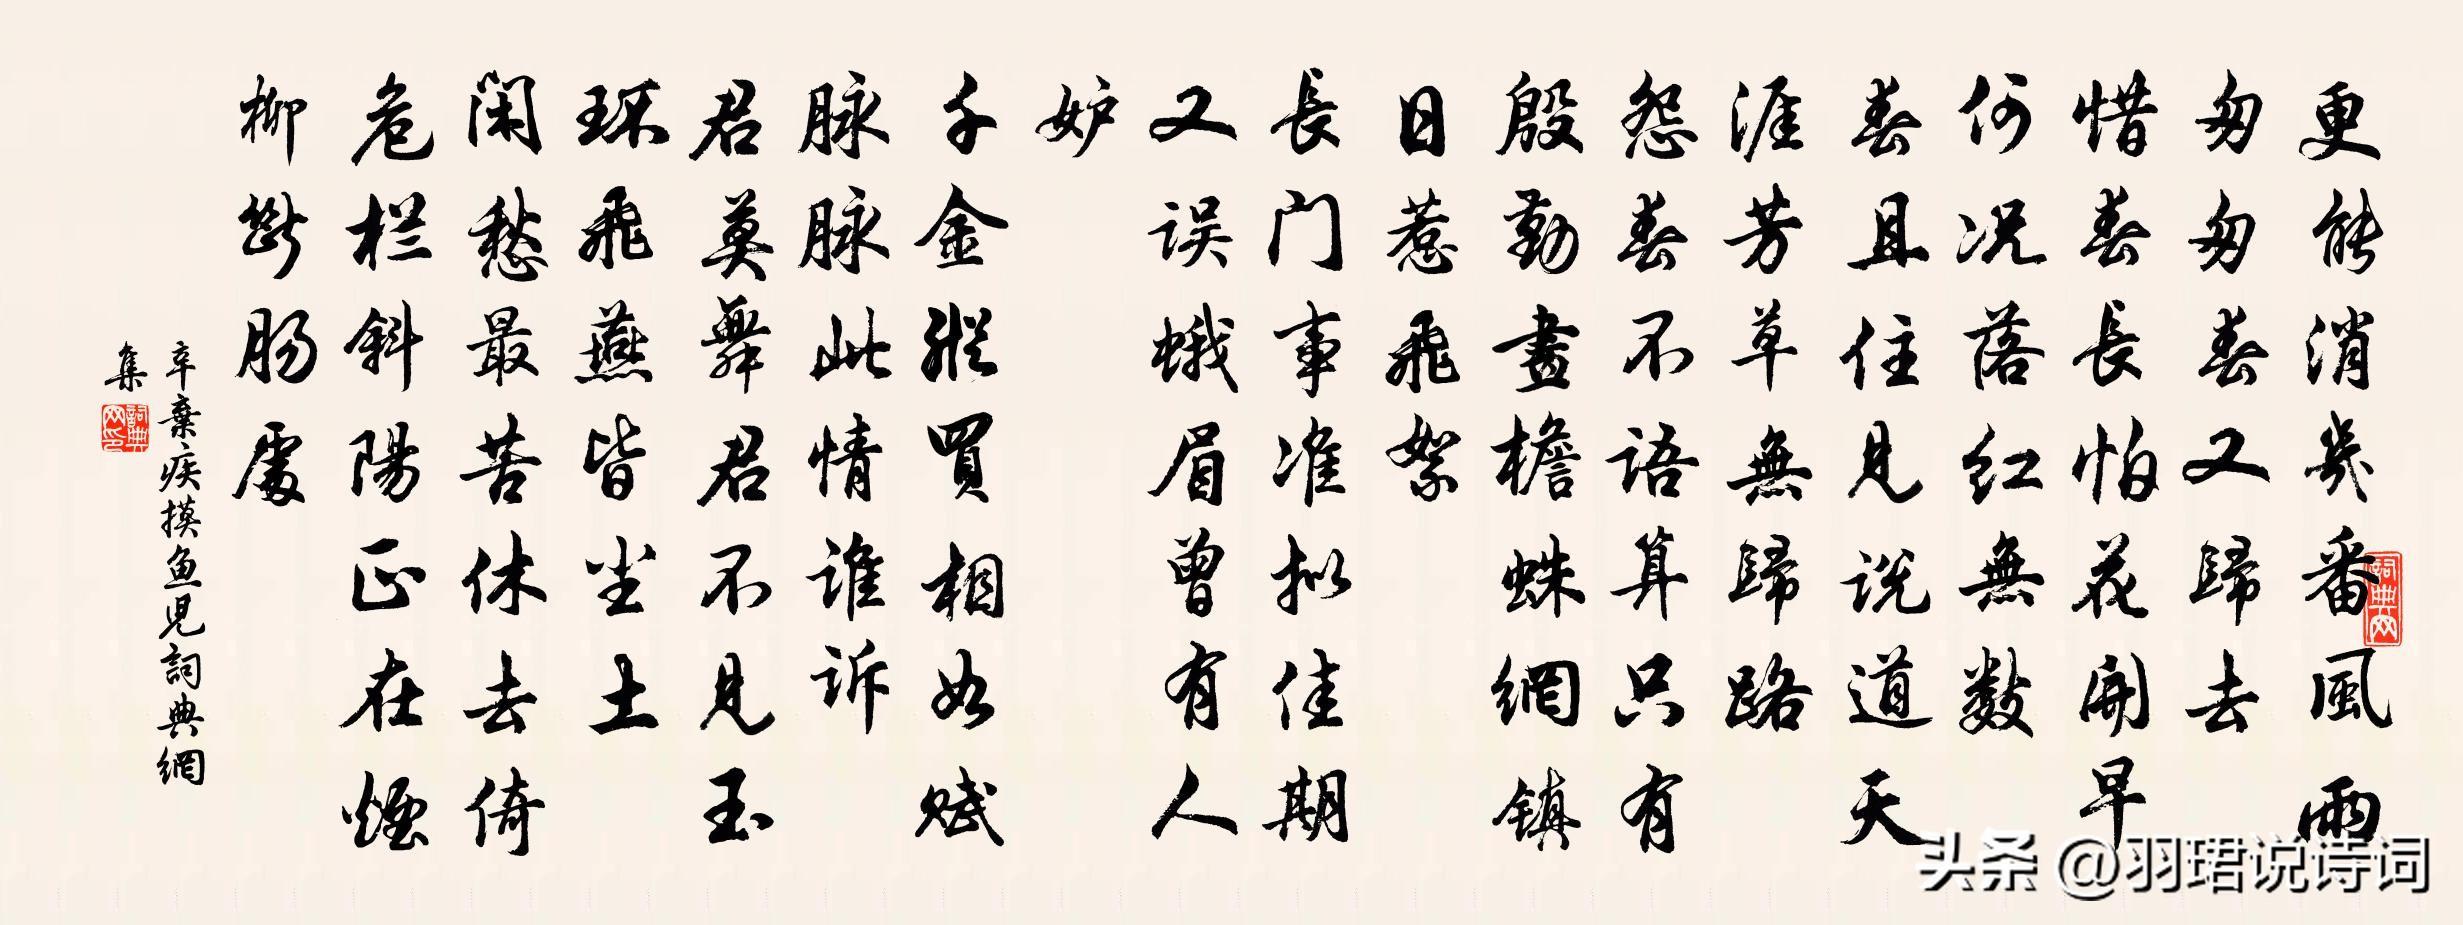 更能消幾番風雨
匆匆春又歸去
惜春長怕花開早
何况落红無数
春且住見说道天
涯芳草無歸路
怨春不语算只有
殷勤畫檐蛛網镇
日惹飛絮
長门事准拟佳期
又误蛾眉曾有人
妒
千金縱買相如赋
脉脉此情谁诉
君莫舞君不見玉
环飛燕皆尘土
闲愁最苦休去倚
危栏斜陽正在煙
柳斷肠處
辛棄疾摸鱼兒詞典網
集
詞典网
詞典网印
头条 @羽珺说诗词